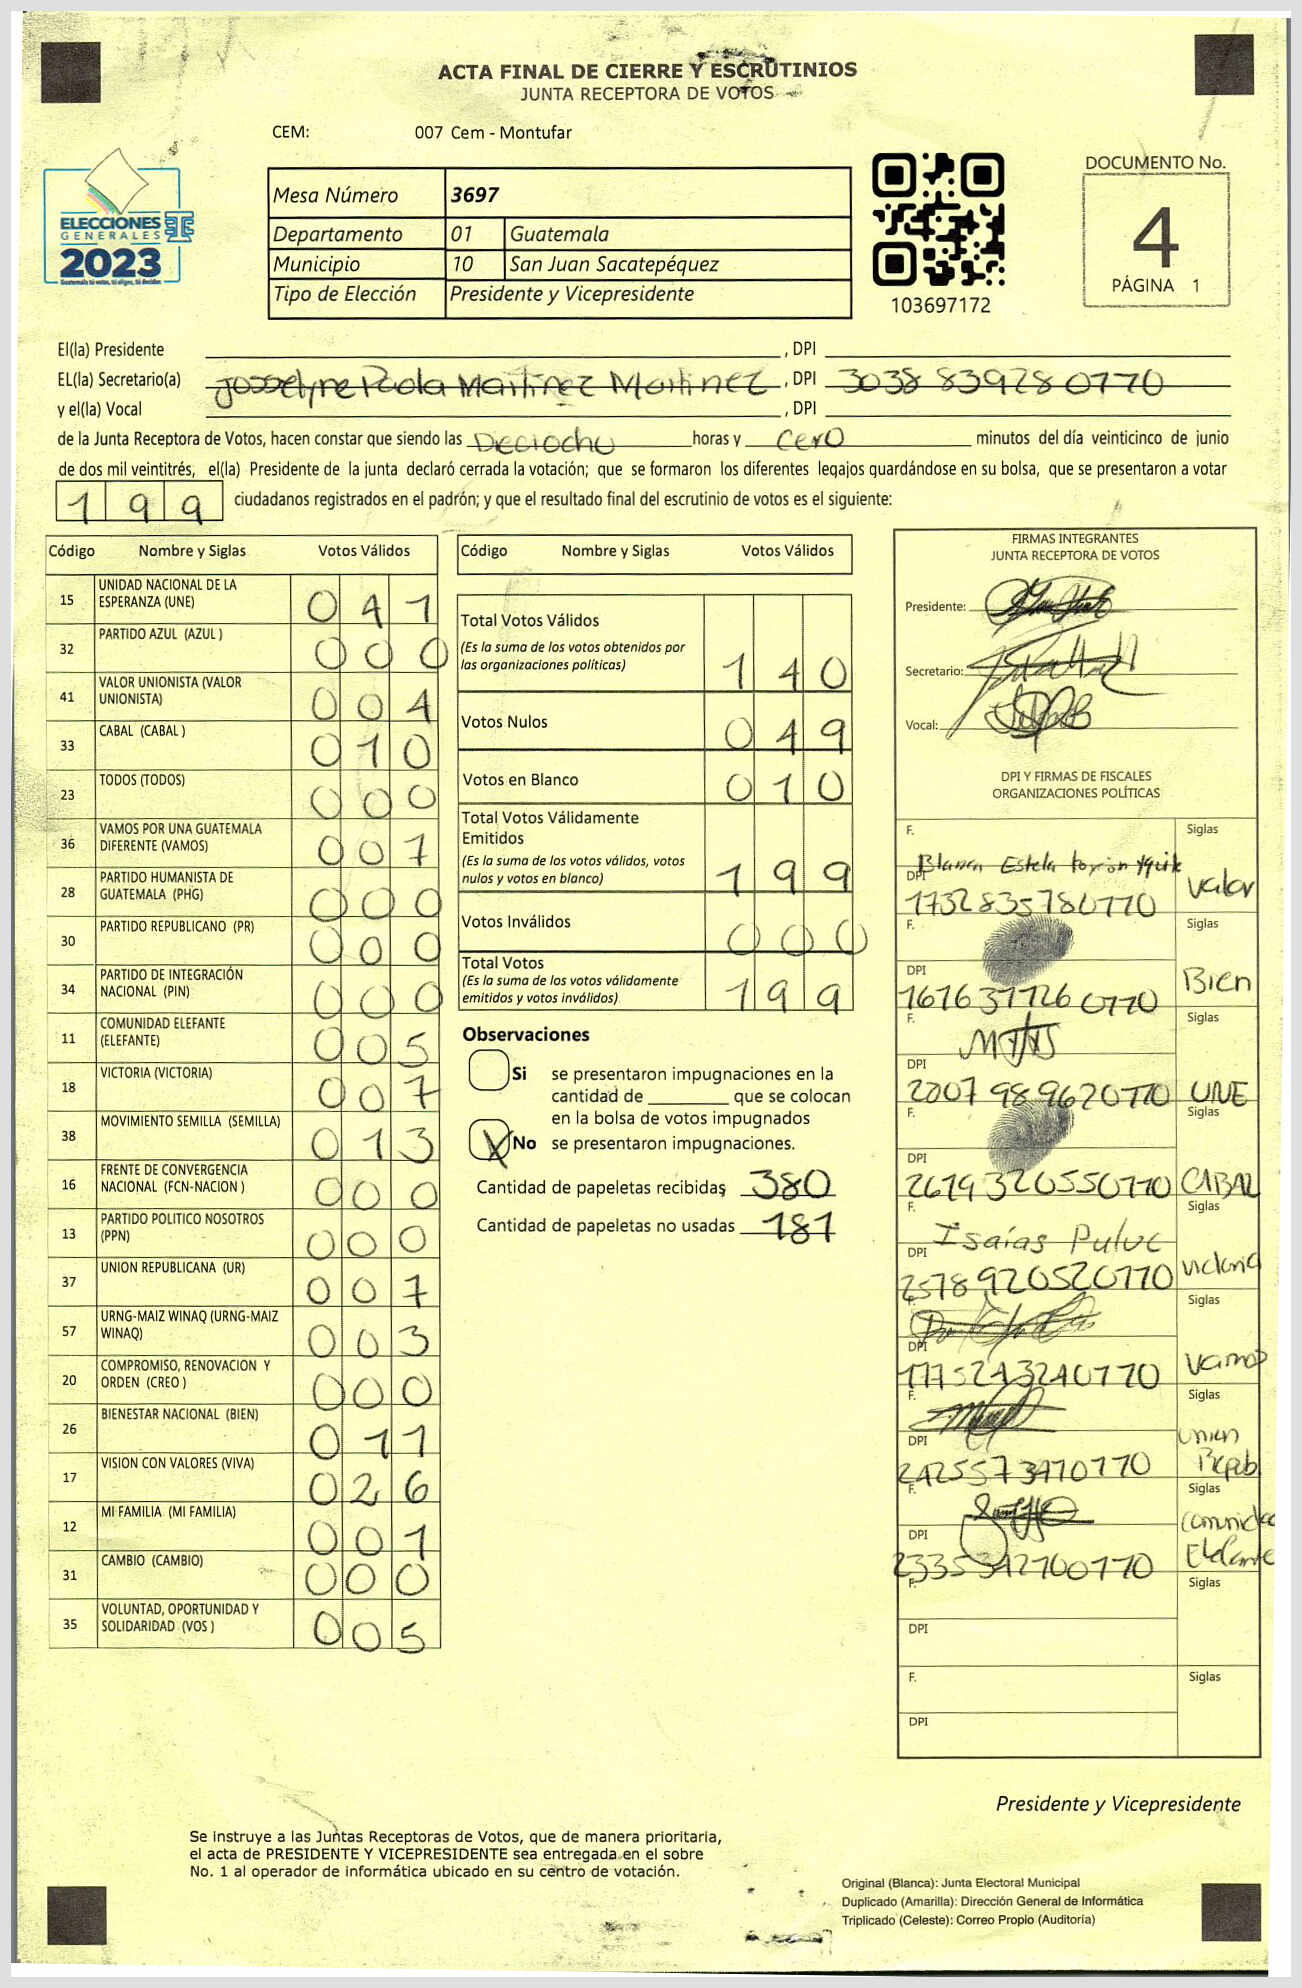 ACTA FINAL DE CIERRE Y ESCRUTINIOS
JUNTA RECEPTORA DE VOTOS
CEM: 007 Cem - Montufar
ELECCIONES
GENERALES
2023
Guatemala tú votas, tú eliges, tú decides
TSE
Mesa Número 3697
Departamento 01 Guatemala
Municipio 10 San Juan Sacatepéquez
Tipo de Elección Presidente y Vicepresidente
103697172
DOCUMENTO No.
4
PÁGINA 1
El(la) Presidente , DPI
EL(la) Secretario(a) Josselyne Paola Martinez Martinez , DPI 3038 839280770
y el(la) Vocal , DPI
de la Junta Receptora de Votos, hacen constar que siendo las Deciocho horas y cero minutos del día veinticinco de junio
de dos mil veintitrés, el(la) Presidente de la junta declaró cerrada la votación; que se formaron los diferentes legajos guardándose en su bolsa, que se presentaron a votar
199 ciudadanos registrados en el padrón; y que el resultado final del escrutinio de votos es el siguiente:
Código Nombre y Siglas Votos Válidos
15 UNIDAD NACIONAL DE LA ESPERANZA (UNE) 041
32 PARTIDO AZUL (AZUL ) 000
41 VALOR UNIONISTA (VALOR UNIONISTA) 004
33 CABAL (CABAL ) 010
23 TODOS (TODOS) 000
36 VAMOS POR UNA GUATEMALA DIFERENTE (VAMOS) 007
28 PARTIDO HUMANISTA DE GUATEMALA (PHG) 000
30 PARTIDO REPUBLICANO (PR) 000
34 PARTIDO DE INTEGRACIÓN NACIONAL (PIN) 000
11 COMUNIDAD ELEFANTE (ELEFANTE) 005
18 VICTORIA (VICTORIA) 007
38 MOVIMIENTO SEMILLA (SEMILLA) 013
16 FRENTE DE CONVERGENCIA NACIONAL (FCN-NACION ) 000
13 PARTIDO POLITICO NOSOTROS (PPN) 000
37 UNION REPUBLICANA (UR) 007
57 URNG-MAIZ WINAQ (URNG-MAIZ WINAQ) 003
20 COMPROMISO, RENOVACION Y ORDEN (CREO ) 000
26 BIENESTAR NACIONAL (BIEN) 011
17 VISION CON VALORES (VIVA) 026
12 MI FAMILIA (MI FAMILIA) 001
31 CAMBIO (CAMBIO) 000
35 VOLUNTAD, OPORTUNIDAD Y SOLIDARIDAD (VOS ) 005
Código Nombre y Siglas Votos Válidos
Total Votos Válidos
(Es la suma de los votos obtenidos por
las organizaciones políticas) 140
Votos Nulos 049
Votos en Blanco 010
Total Votos Válidamente
Emitidos
(Es la suma de los votos válidos, votos
nulos y votos en blanco) 199
Votos Inválidos 000
Total Votos
(Es la suma de los votos válidamente
emitidos y votos inválidos) 199
Observaciones
Si se presentaron impugnaciones en la
cantidad de ________ que se colocan
en la bolsa de votos impugnados
X No se presentaron impugnaciones.
Cantidad de papeletas recibidas 380
Cantidad de papeletas no usadas 181
FIRMAS INTEGRANTES
JUNTA RECEPTORA DE VOTOS
Presidente:
Secretario:
Vocal:
DPI Y FIRMAS DE FISCALES
ORGANIZACIONES POLÍTICAS
F. Blanca Estela Siglas
DPI 1732835780770 Valor
F. Siglas
DPI 1616317260770 Bien
F. Siglas
DPI 2007989620770 UNE
F. Siglas
DPI 2619320550770 CABAL
F. Isaías Puluc Siglas
DPI 2578920520770 Victoria
F. Siglas
DPI 1775243240770 Vamos
F. Siglas
DPI 2425573470770 Union Repub
F. Siglas
DPI 2335342700770 Comunidad Elefante
F. Siglas
DPI
F. Siglas
DPI
Presidente y Vicepresidente
Se instruye a las Juntas Receptoras de Votos, que de manera prioritaria,
el acta de PRESIDENTE Y VICEPRESIDENTE sea entregada en el sobre
No. 1 al operador de informática ubicado en su centro de votación.
Original (Blanca): Junta Electoral Municipal
Duplicado (Amarilla): Dirección General de Informática
Triplicado (Celeste): Correo Propio (Auditoría)